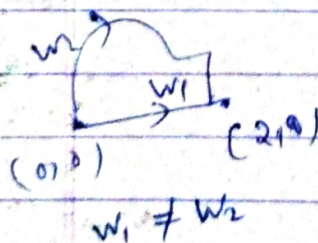 W2
W1
(2,0)
(0,0)
W1 ≠ W2